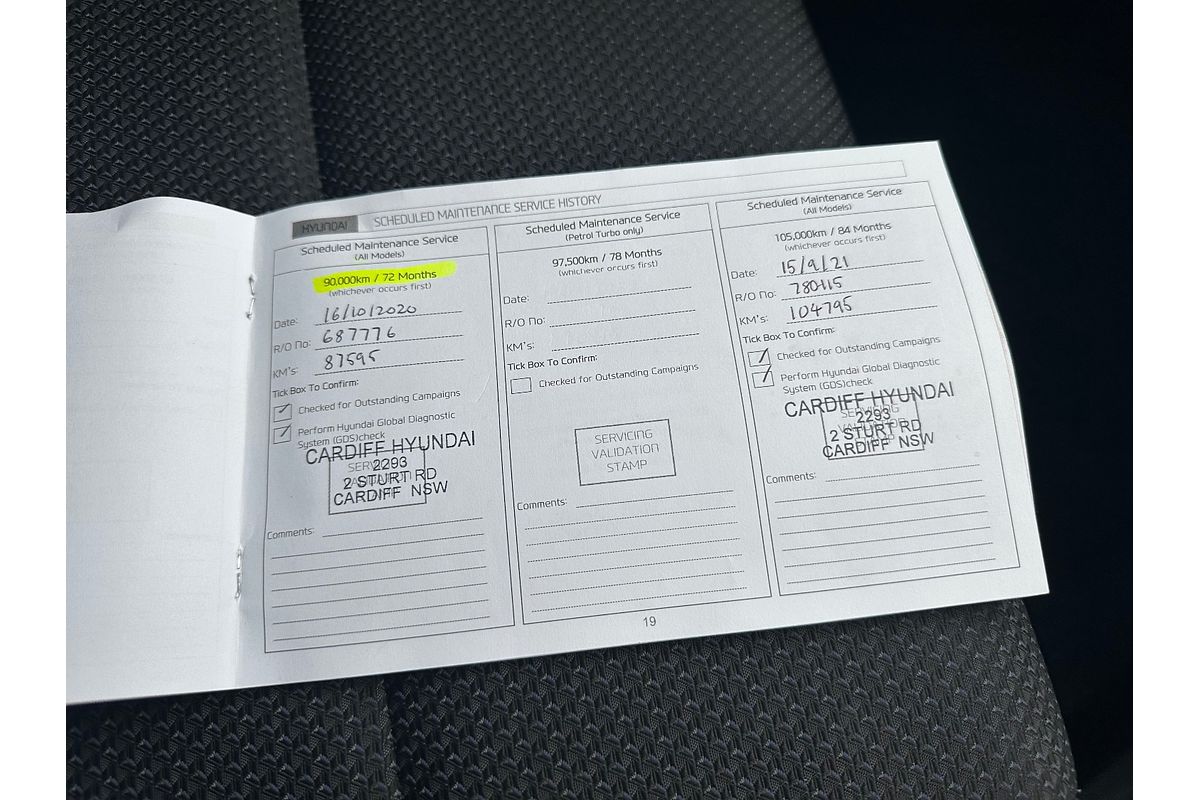 HYUNDAI SCHEDULED MAINTENANCE SERVICE HISTORY
Scheduled Maintenance Service
(All Models)
90,000km / 72 Months
(whichever occurs first)
Date: 16/10/2020
R/O No: 687776
KM's: 87595
Tick Box To Confirm:
Checked for Outstanding Campaigns
Perform Hyundai Global Diagnostic
System (GDS)check
CARDIFF HYUNDAI
2293
2 STURT RD
CARDIFF NSW
Comments:
Scheduled Maintenance Service
(Petrol Turbo only)
97,500km / 78 Months
(whichever occurs first)
Date:
R/O No:
KM's:
Tick Box To Confirm:
Checked for Outstanding Campaigns
SERVICING
VALIDATION
STAMP
Comments:
Scheduled Maintenance Service
(All Models)
105,000km / 84 Months
(whichever occurs first)
Date: 15/9/21
R/O No:
KM's: 104795
Tick Box To Confirm:
Checked for Outstanding Campaigns
Perform Hyundai Global Diagnostic
System (GDS)check
CARDIFF HYUNDAI
2293
2 STURT RD
CARDIFF NSW
Comments:
19